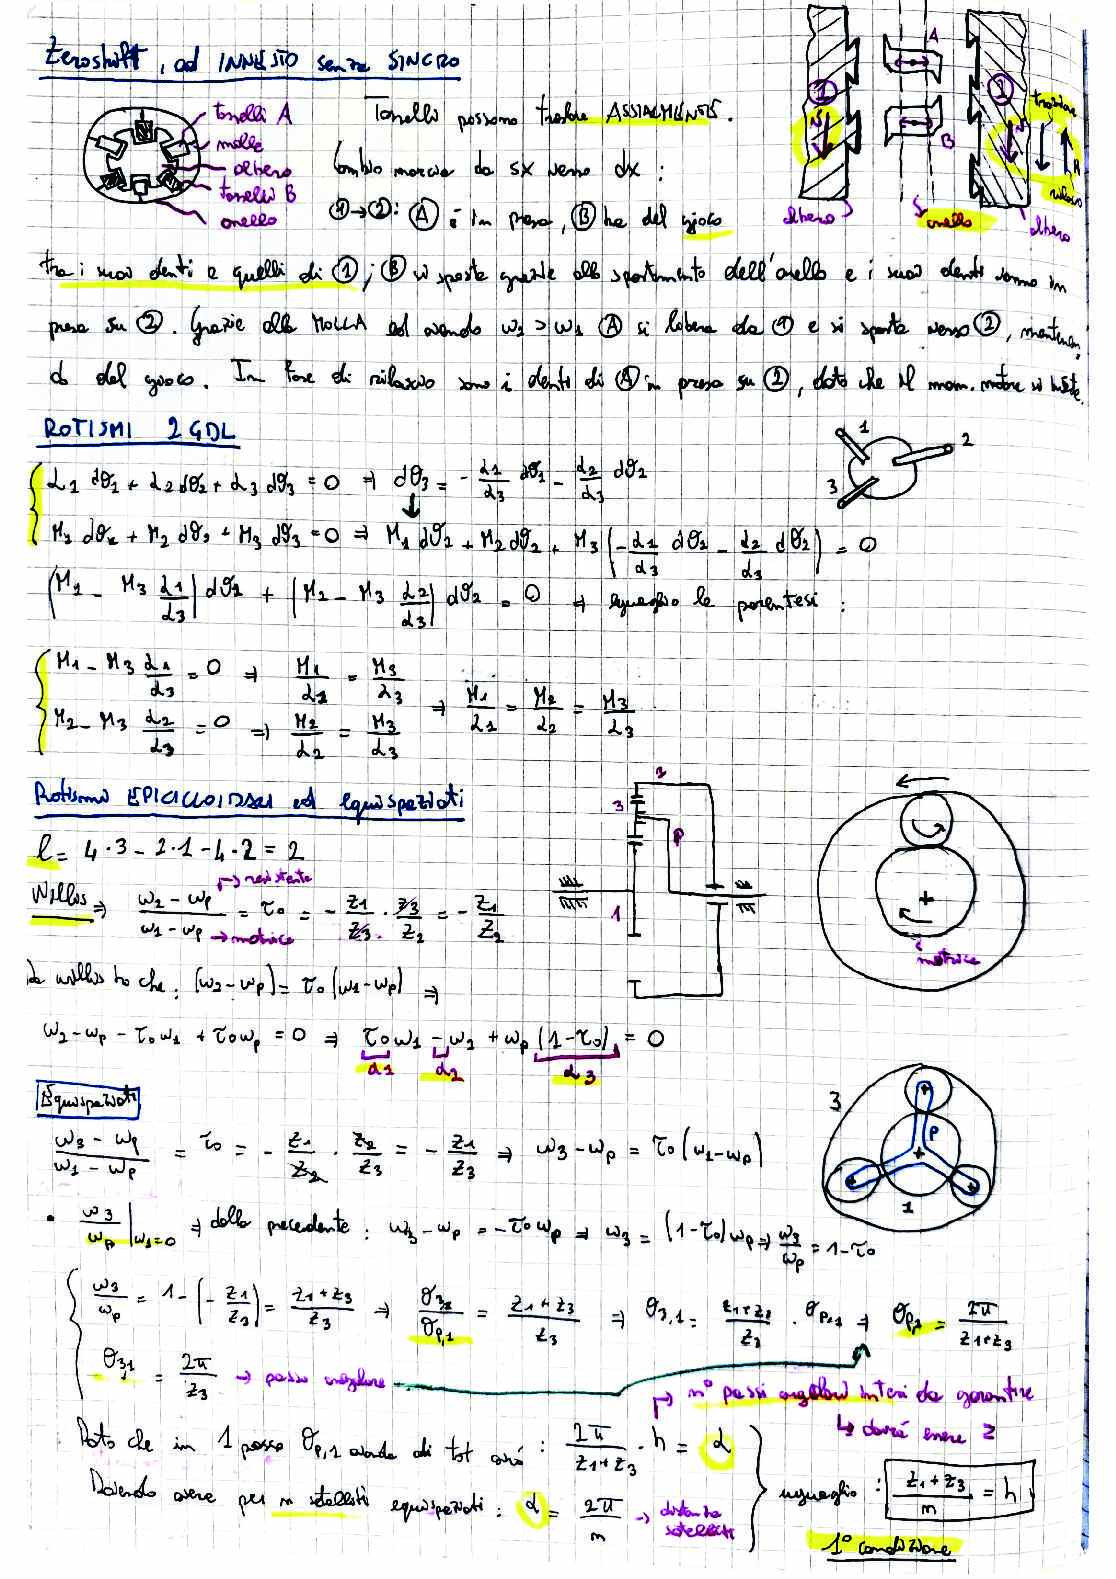 Zeroshift, ad INNESTO senza SINCRO
tasselli A
molle
albero
tasselli B
anello
Tasselli possono traslare ASSIALMENTE.
Cambio marcia da sx verso dx:
①→②: Ⓐ è in presa, Ⓑ ha del gioco
1
A
B
2
trazione
rilascio
albero
anello
albero
tra i suoi denti e quelli di ①; Ⓑ si sposta grazie allo spostamento dell'anello e i suoi denti sono in
presa su ②. Grazie alla MOLLA ed avendo ω2 > ω1 Ⓐ si libera da ① e si sposta verso ②, mantenen
do del gioco. In fase di rilascio sono i denti di Ⓐ in presa su ②, dato che il mom. motore si inverte.
ROTISMI 2 GDL
1
2
3
α1 dϑ1 + α2 dϑ2 + α3 dϑ3 = 0 ⇒ dϑ3 = - α1/α3 dϑ1 - α2/α3 dϑ2
M1 dϑ1 + M2 dϑ2 + M3 dϑ3 = 0 ⇒ M1 dϑ1 + M2 dϑ2 + M3 (- α1/α3 dϑ1 - α2/α3 dϑ2) = 0
(M1 - M3 α1/α3) dϑ1 + (M2 - M3 α2/α3) dϑ2 = 0 ⇒ uguaglio le parentesi:
M1 - M3 α1/α3 = 0 ⇒ M1/α1 = M3/α3
M2 - M3 α2/α3 = 0 ⇒ M2/α2 = M3/α3
⇒ M1/α1 = M2/α2 = M3/α3
Rotismo EPICICLOIDALI ed equispaziati
2
3
P
1
l = 4·3 - 2·1 - 4·2 = 2
Willis ⇒ ω2 - ωp / ω1 - ωp = τ0 = - z1/z3 · z3/z2 = - z1/z2
resistente
motrice
motrice
Da willis ho che: (ω2 - ωp) = τ0 (ω1 - ωp) ⇒
ω2 - ωp - τ0ω1 + τ0ωp = 0 ⇒ τ0ω1 - ω2 + ωp (1 - τ0) = 0
α1 α2 α3
Equispaziati
3
P
1
ω3 - ωp / ω1 - ωp = τ0 = - z1/z2 · z2/z3 = - z1/z3 ⇒ ω3 - ωp = τ0 (ω1 - ωp)
• ω3/ωp |ω1=0 ⇒ dalla precedente: ω3 - ωp = -τ0ωp ⇒ ω3 = (1-τ0)ωp ⇒ ω3/ωp = 1-τ0
ω3/ωp = 1-(-z1/z3) = z1+z3/z3 ⇒ ϑ3,1/ϑp,1 = z1+z3/z3 ⇒ ϑ3,1 = z1+z3/z3 · ϑp,1 ⇒ ϑp,1 = 2π/z1+z3
ϑ3,1 = 2π/z3 → passo angolare
n° passi angolari interi da garantire
↳ dovrà essere Z
Dato che in 1 passo ϑp,1 avendo di tot avrò: 2π/z1+z3 · h = α
Dovendo avere per m satelliti equispaziati: α = 2π/m → distanza satelliti
uguaglio: z1+z3/m = h
1° condizione